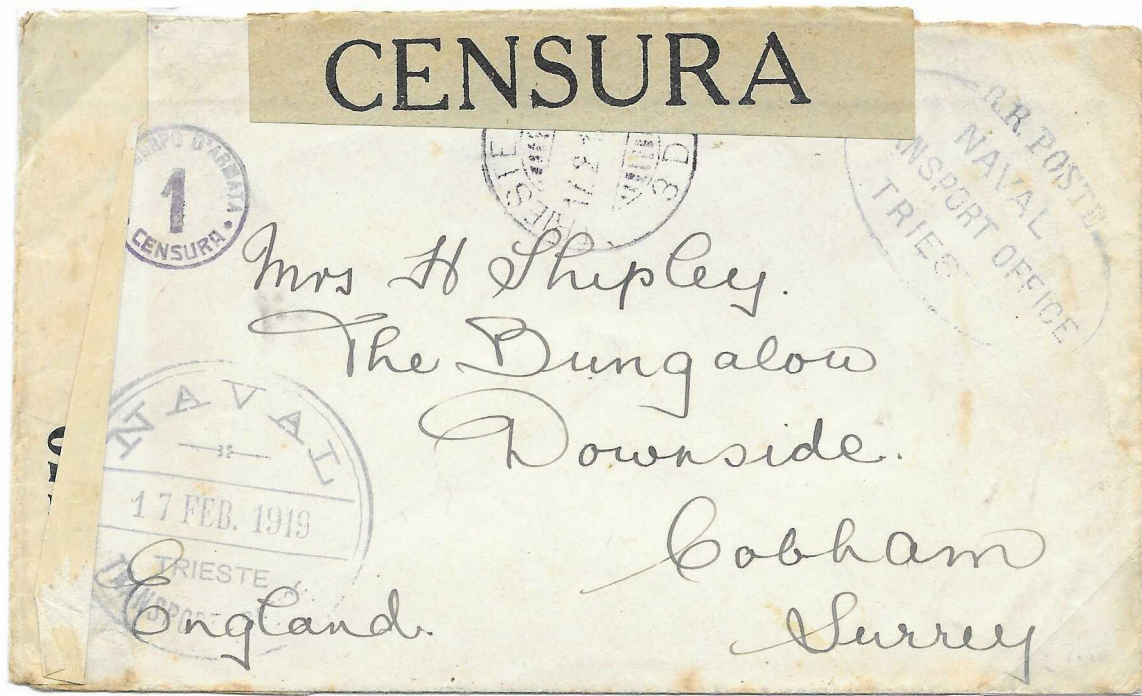 CENSURA
CORPO D'ARMATA
1
CENSURA
3D
R.R. POSTE
NAVAL
TRANSPORT OFFICE
TRIESTE
Mrs H Shipley.
The Bungalow
Downside.
Cobham
Surrey
England.
NAVAL
17 FEB. 1919
TRIESTE